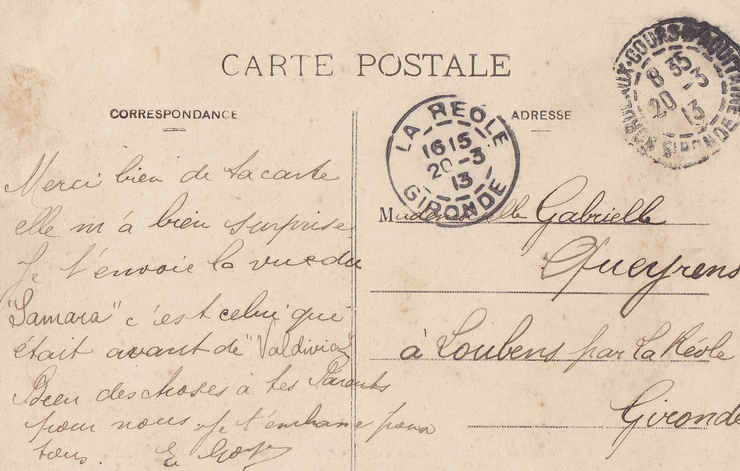 CARTE POSTALE
CORRESPONDANCE
ADRESSE
BORDEAUX-COURS D'AQUITAINE
8 35
20 -3
13
GIRONDE
LA REOLE
16 15
20 -3
13
GIRONDE
Merci bien de ta carte
elle m'a bien surprise
Je t'envoie la vue du
"Samara" c'est celui que
était avant de "Valdivia"
Bien des choses a tes Parents
pour nous Je t'embrasse pour
tous. E.
Mademoiselle Gabrielle
Queyrens
à Loubens par La Reole
Gironde